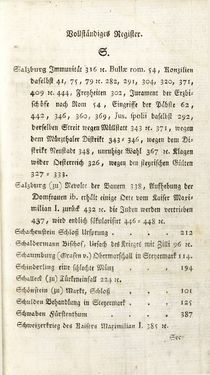 Vollständiges Register.
S.
Salzburg Immunität 316 ꝛc. Bullæ rom. 54, Konzilien
daselbst 41, 75, 79 ꝛc. 282, 291, 304, 320, 371,
409 ꝛc. 444, Freyheiten 302, Jurament der Erzbi-
schöfe nach Rom 54, Eingriffe der Päbste 62,
442, 345, 346, 369, 370 ꝛc. jus. spolii daselbst 292,
derselben Streit wegen Millstatt 343 ꝛc. 371, wegen
dem Mürzthaler Distrikt 343 - 346, wegen dem Di-
strikt Neustadt 348, unruhige Wahl 367 ꝛc. Klagen
wider Oesterreich 326, wegen den steyrischen Gülten
327 - 333.
Salzburg (zu) Revolte der Bauern 338, Aufhebung der
Domfrauen ib. erhält einige Orte vom Kaiser Maxi-
milian I. zurück 432 ꝛc. die Juden werden vertrieben
437, wird endlich säkularisirt 446 - 448 ꝛc.
Schachenstein Schloß Ursprung 212
Schaldermann Bischof, Ursach des Krieges mit Zilli 96 ꝛc.
Schaumburg (Grafen v.) Obermarschall in Steyermark 114.
Schinderling eine schlechte Münz 194
Schalleck (zu) Türkeneinfall 224 ꝛc.
Schönstein (zu) Markt, Schloß 101
Schulden Behandlung in Steyermark 125
Schwaben Fürstenthum 387
Schweizerkrieg des Kaisers Maximilian I. 385 ꝛc.